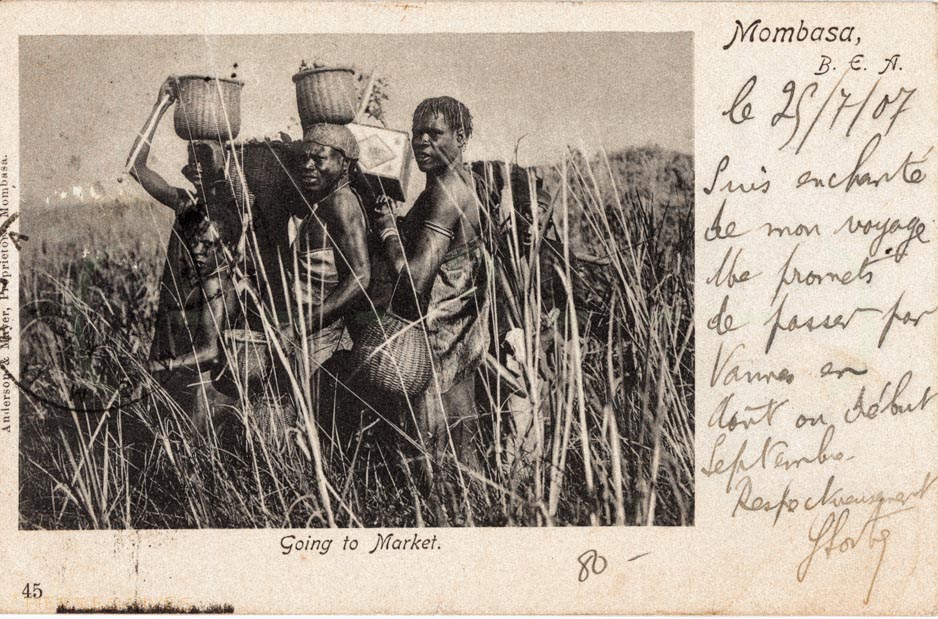 Mombasa,
B. E. A.
le 25/7/07
Suis enchanté
de mon voyage
Me promets
de passer par
Vannes en
août ou début
Septembre
Respectueusement
Going to Market.
80 -
45
Anderson & Mayer, Proprietors Mombasa.